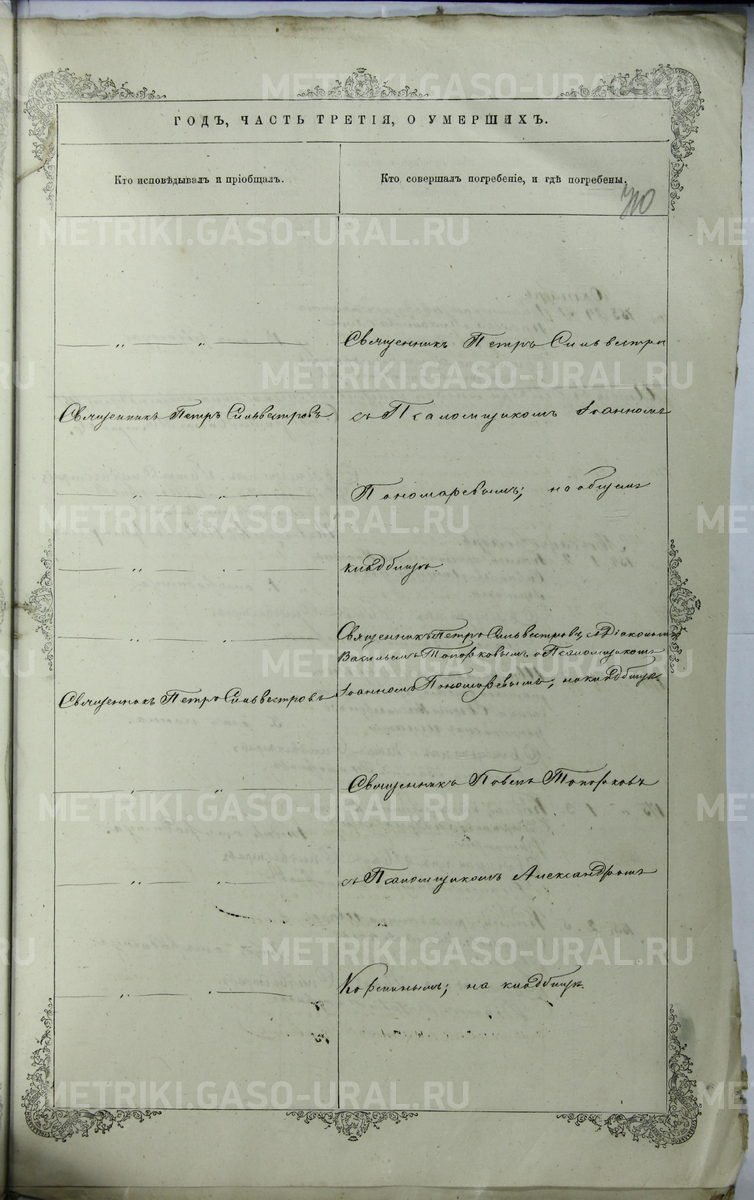 METRIKI.GASO-URAL.RU
ГОДЪ, ЧАСТЬ ТРЕТІЯ, О УМЕРШИХЪ.
Кто исповѣдывалъ и пріобщалъ.
Кто совершалъ погребеніе, и гдѣ погребены.
— „ — „ —
Священникъ Петръ Сильвестров
Священникъ Петръ Сильвестровъ.
съ Псаломщикомъ Іоанномъ
— „ — „ —
Пономаревымъ; на общемъ
— „ — „ —
кладбищѣ.
— „ — „ —
Священникъ Петръ Сильвестровъ, съ Діакономъ
Васильемъ Топорковымъ и Псаломщикомъ
Священникъ Петръ Сильвестровъ
Іоанномъ Пономаревымъ; на кладбищѣ
— „ — „ —
Священникъ Павелъ Топорковъ
— „ — „ —
съ Псаломщикомъ Александромъ
— „ — „ —
на кладбищѣ.